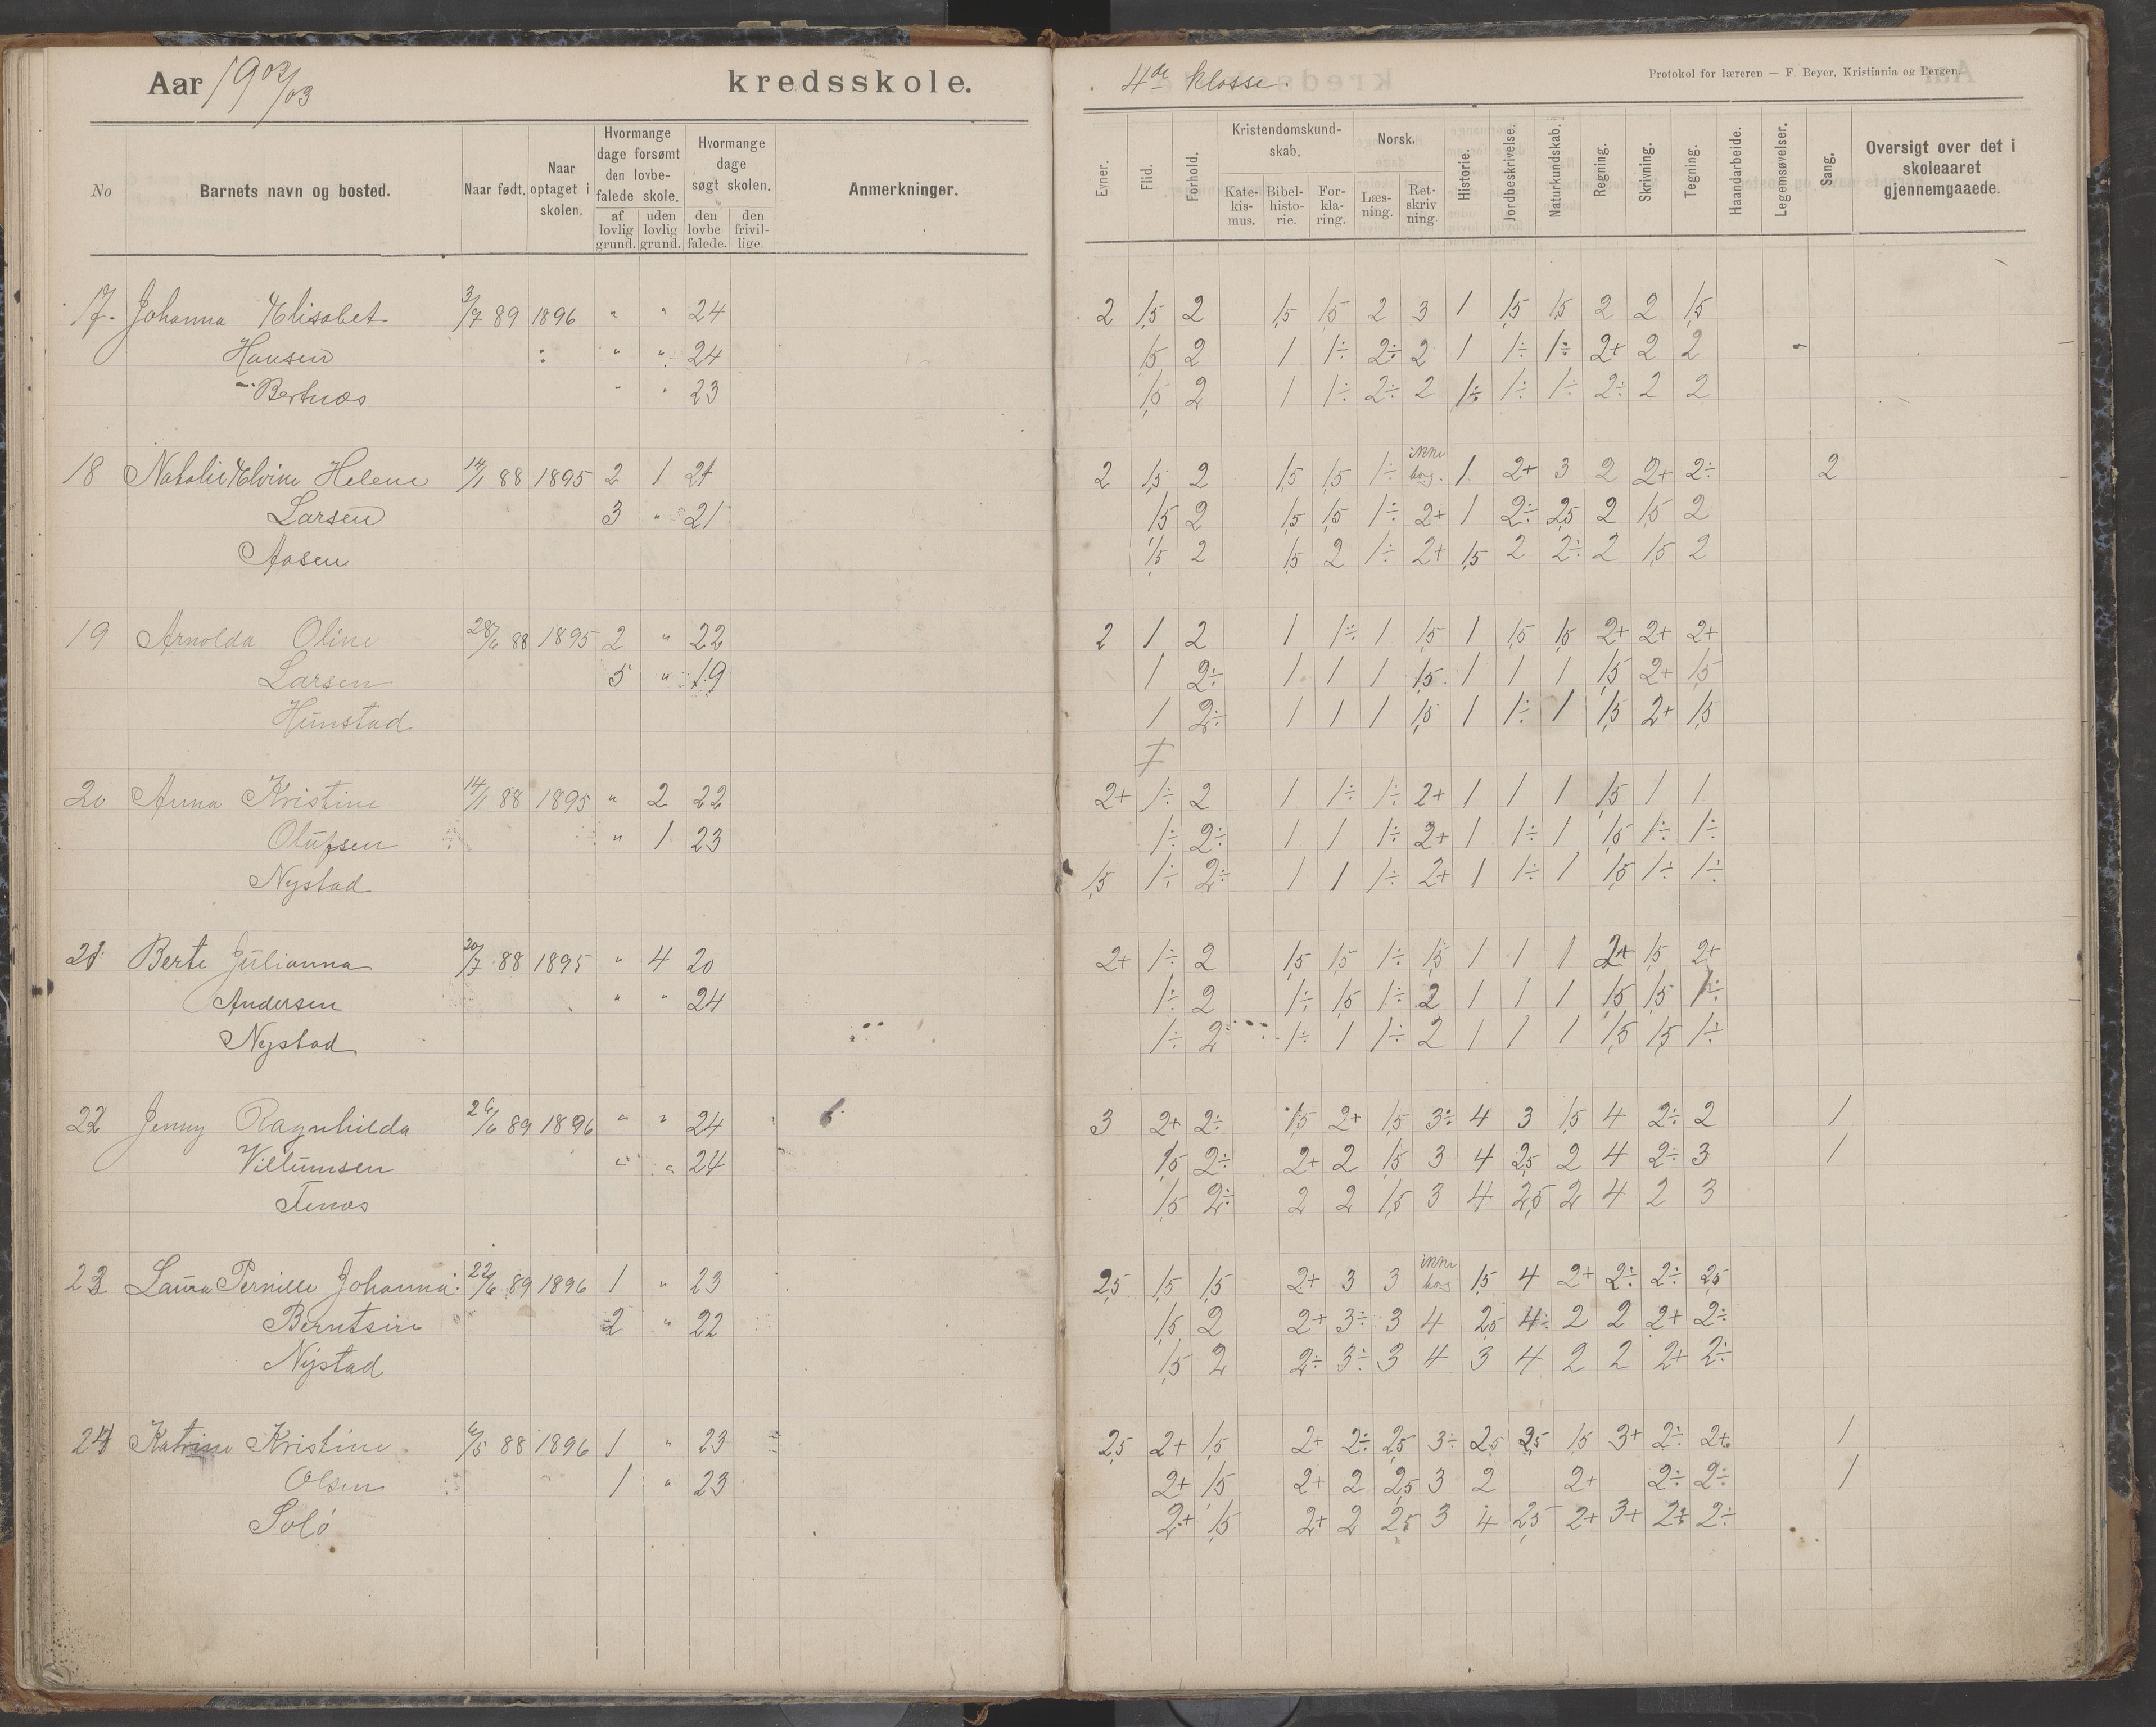 Aar 1902/03 kredsskole.
4de klasse.
Protokol for læreren — F. Beyer, Kristiania og Bergen.
No
Barnets navn og bosted.
Naar født.
Naar optaget i skolen.
Hvormange dage forsømt den lovbefalede skole.
af lovlig grund.
uden lovlig grund.
Hvormange dage søgt skolen.
den lovbefalede.
den frivillige.
Anmerkninger.
Evner.
Flid.
Forhold.
Kristendomskundskab.
Katekismus.
Bibelhistorie.
Forklaring.
Norsk.
Læsning.
Retskrivning.
Historie.
Jordbeskrivelse.
Naturkundskab.
Regning.
Skrivning.
Tegning.
Haandarbeide.
Legemsøvelser.
Sang.
Oversigt over det i skoleaaret gjennemgaaede.
17. Johanna Elisabet 3/7 89 1896 " " 24 2 1,5 2 1,5 1,5 2 3 1 1,5 1,5 2 2 1,5
Hansen " " 24 1,5 2 1 1÷ 2÷ 2 1 1÷ 1÷ 2+ 2 2
Bertnæs " " 23 1,5 2 1 1÷ 2÷ 2 1÷ 1÷ 1÷ 2÷ 2 2
18 Natalie Elvine Helene 14/1 88 1895 2 1 21 2 1,5 2 1,5 1,5 1÷ ikke bog. 1 2+ 3 2 2+ 2÷ 2
Larsen 3 " 21 1,5 2 1,5 1,5 1÷ 2+ 1 2÷ 2,5 2 1,5 2
Aasen 1,5 2 1,5 2 1÷ 2+ 1,5 2 2÷ 2 1,5 2
19 Arnolda Oline 28/6 88 1895 2 " 22 2 1 2 1 1÷ 1 1,5 1 1,5 1,5 2+ 2+ 2+
Larsen 5 " 19 1 2÷ 1 1 1 1,5 1 1 1 1,5 2+ 1,5
Hunstad 1 2÷ 1 1 1 1,5 1 1÷ 1 1,5 2+ 1,5
20 Anna Kristine 14/1 88 1895 " 2 22 2+ 1÷ 2 1 1÷ 1÷ 2+ 1 1 1 1,5 1 1
Olufsen " 1 23 1÷ 2÷ 1 1 1÷ 2+ 1 1÷ 1 1,5 1÷ 1÷
Nystad 1,5 1÷ 2÷ 1 1 1÷ 2+ 1 1÷ 1 1,5 1÷ 1÷
21 Berte Julianna 20/7 88 1895 " 4 20 2+ 1÷ 2 1,5 1,5 1÷ 1,5 1 1 1 2+ 1,5 2+
Andersen " " 24 1÷ 2 1÷ 1,5 1÷ 2 1 1 1 1,5 1,5 1÷
Nystad 1÷ 2 1÷ 1 1÷ 2 1 1 1 1,5 1,5 1÷
22 Jenny Ragnhilda 26/6 89 1896 " " 24 3 2+ 2÷ 1,5 2+ 1,5 3÷ 4 3 1,5 4 2÷ 2 1
Villumsen " " 24 1,5 2÷ 2+ 2 1,5 3 4 2,5 2 4 2÷ 3 1
Tenæs 1,5 2÷ 2 2 1,5 3 4 2,5 2 4 2 3
23 Laura Pernille Johanna 22/6 89 1896 1 " 23 2,5 1,5 1,5 2+ 3 3 ikke bog 1,5 4 2+ 2÷ 2÷ 2,5
Berntsen 2 " 22 1,5 2 2+ 3÷ 3 4 2,5 4÷ 2 2 2+ 2÷
Nystad 1,5 2 2÷ 3÷ 3 4 3 4 2 2 2+ 2÷
24 Katrine Kristine 6/5 88 1896 1 " 23 2,5 2+ 1,5 2+ 2÷ 2,5 3÷ 2,5 2,5 1,5 3+ 2÷ 2+ 1
Olsen 1 " 23 2+ 1,5 2+ 2 2,5 3 2 2+ 2÷ 2÷ 1
Solø 2+ 1,5 2+ 2 2,5 3 4 2,5 2+ 3+ 2+ 2÷